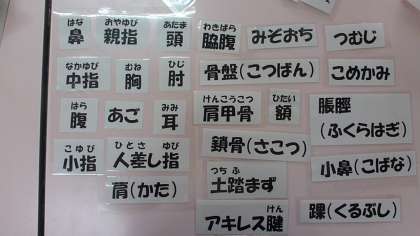 はな
鼻
おやゆび
親指
あたま
頭
わきばら
脇腹
みぞおち
つむじ
なかゆび
中指
むね
胸
ひじ
肘
骨盤(こつばん)
こめかみ
はら
腹
あご
みみ
耳
けんこうこつ
肩甲骨
ひたい
額
脹脛
(ふくらはぎ)
こゆび
小指
ひとさ ゆび
人差し指
鎖骨(さこつ)
小鼻(こばな)
肩(かた)
つちふ
土踏まず
けん
アキレス腱
踝(くるぶし)